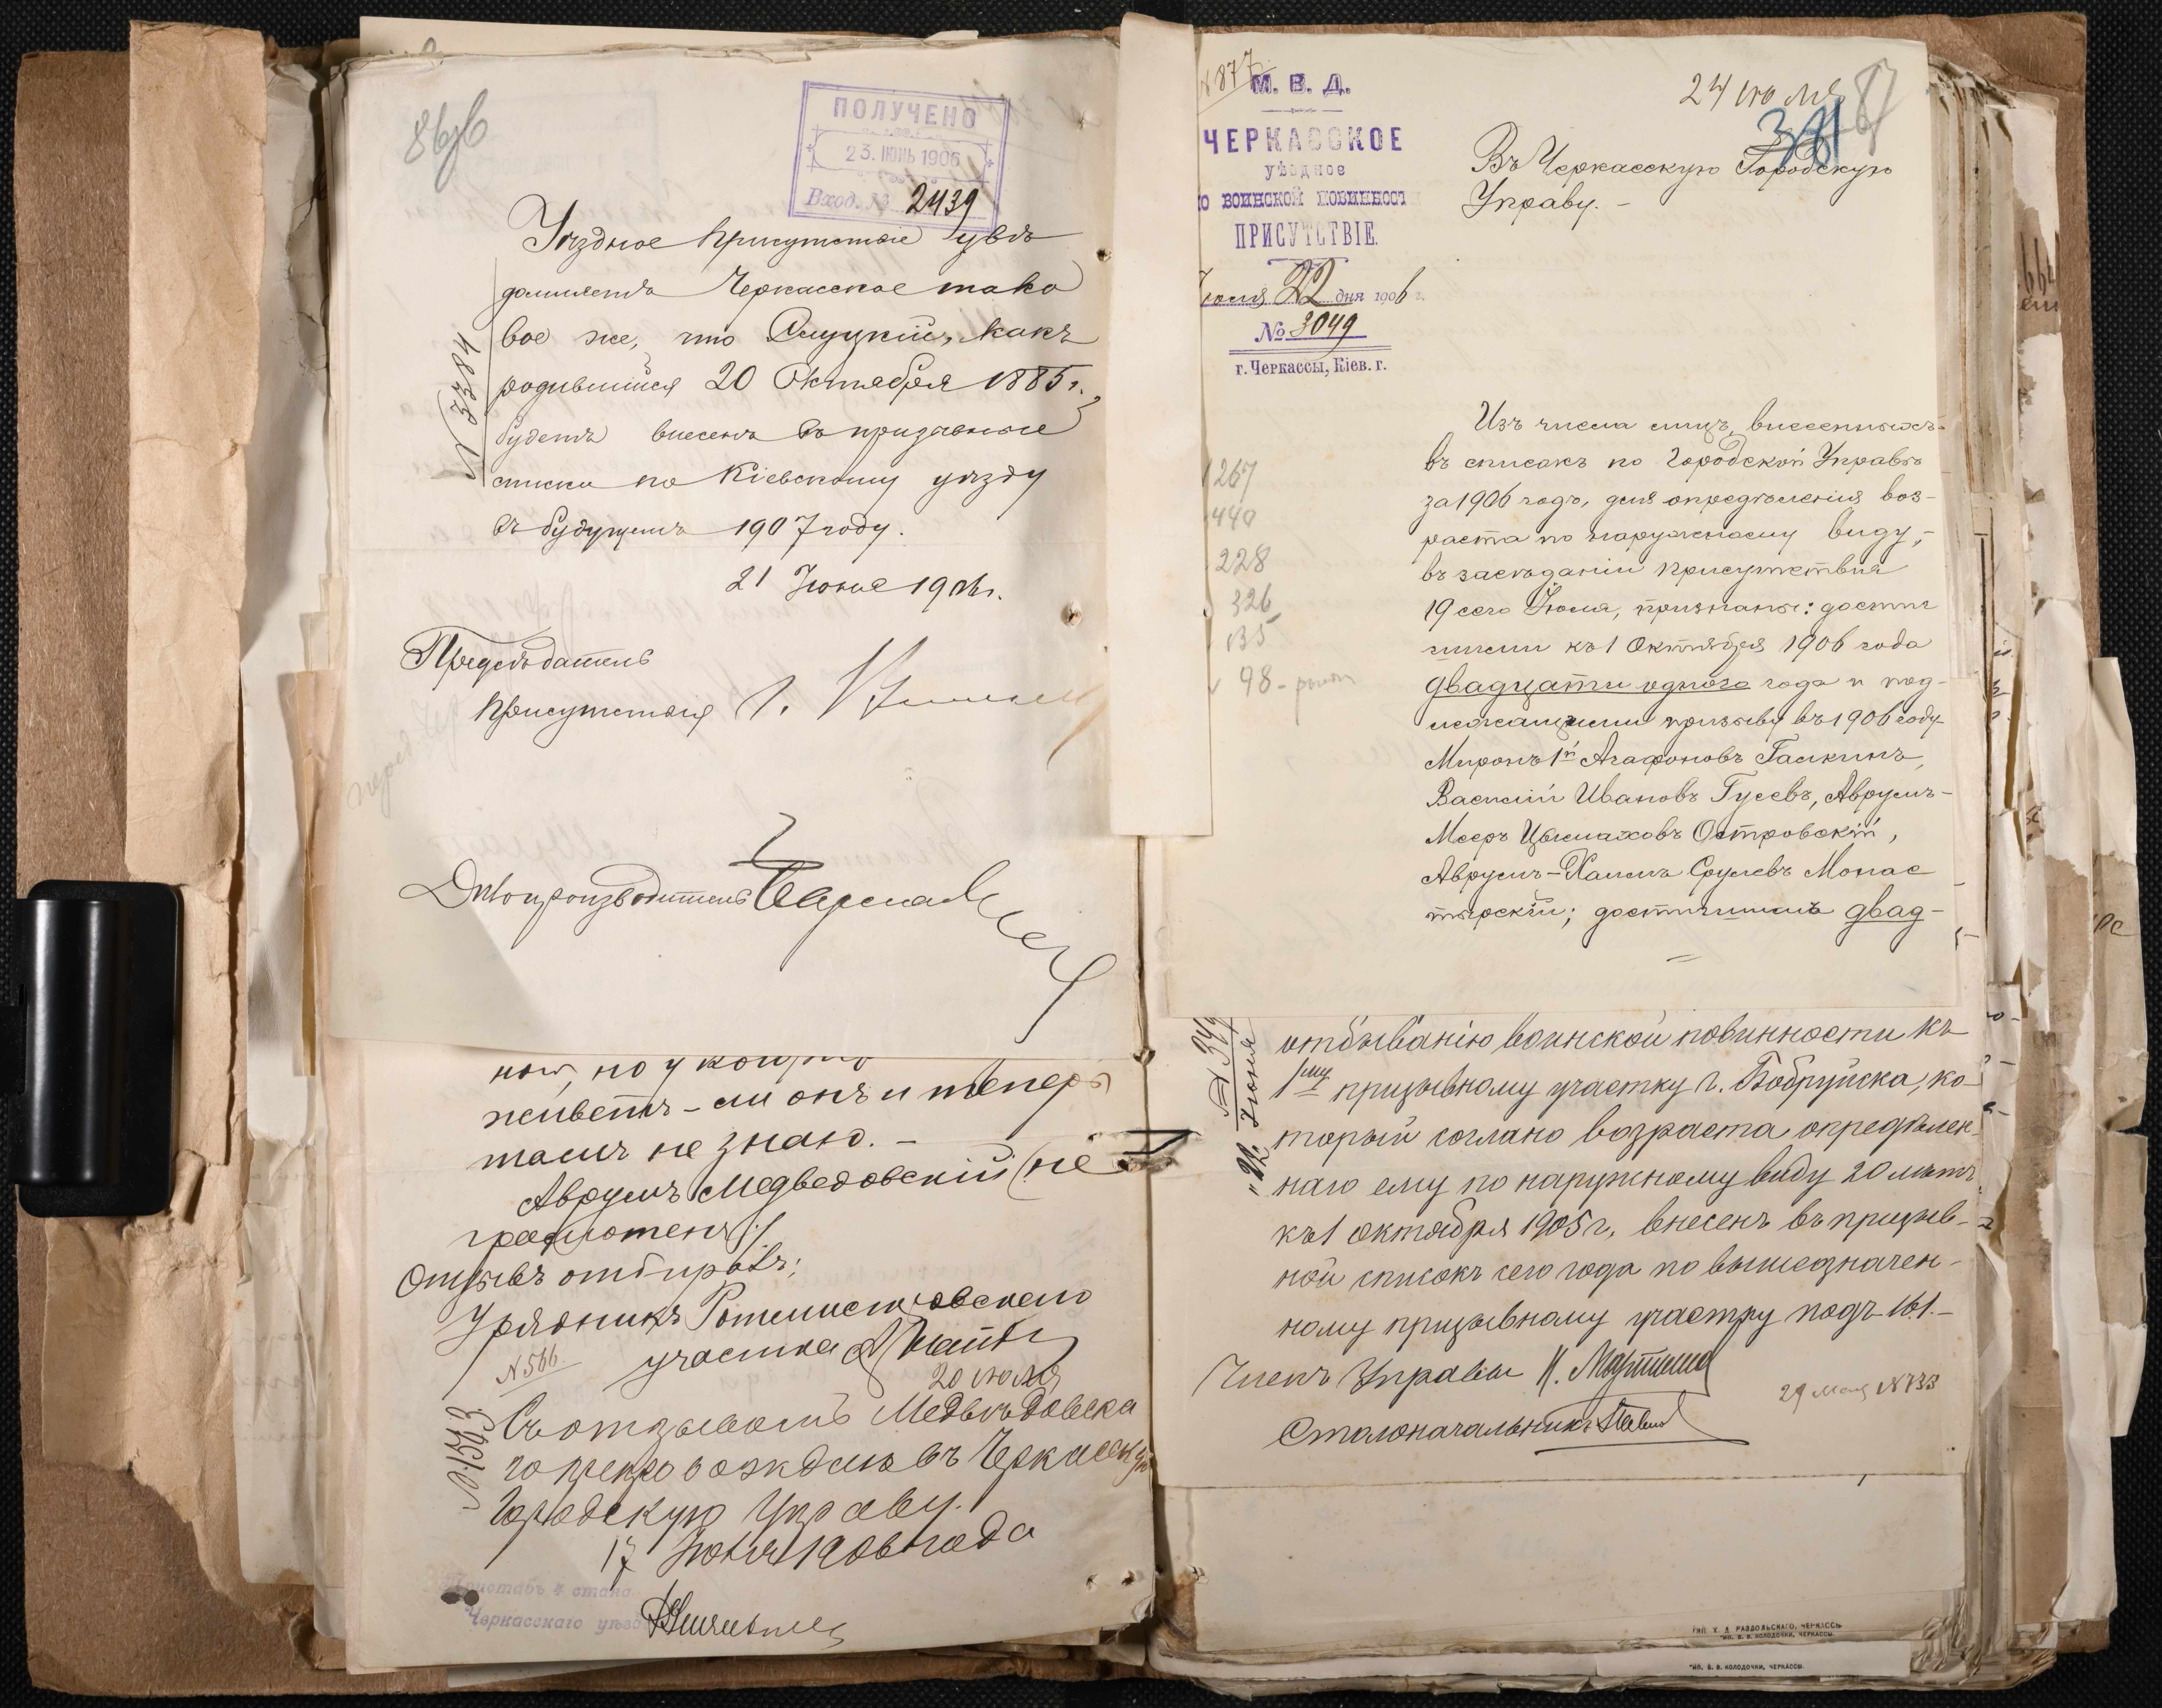 86об
ПОЛУЧЕНО
23. ІЮНЬ 1906
Вход. № 2439
Уѣздное Присутствіе увѣ
домляетъ Черкасское тако
вое же, что Слуцкій, какъ
родившійся 20 Октября 1885 г.,
будетъ внесенъ въ призывные
списки по Кіевскому уѣзду
въ будущемъ 1907 году.
N 3384
21 Іюня 1906 г.
Предсѣдатель
Присутствія
Дѣлопроизводитель
живетъ-ли онъ и теперь
тамъ не знаю. –
Аврумъ Медведовскій (не
грамотенъ)
Отзывъ отбиралъ:
Урядникъ Ротмистровскаго
участка
N 566.
20 іюля
N 1543.
Съ отзывомъ Медвѣдовска
го препровождаю въ Черкасскую
Городскую Управу.
17 Іюня 1906 года
Приставъ 4 стана
Черкасскаго уѣзда
N 877
М. В. Д.
ЧЕРКАССКОЕ
уѣздное
по воинской повинност
ПРИСУТСТВІЕ.
22 дня 1906 г.
№ 3049
г. Черкассы, Кіев. г.
24 іюля
87
381
Въ Черкасскую Городскую
Управу. –
267
440
228
326
135
98
Изъ числа лицъ, внесенныхъ
въ списокъ по Городской Управѣ
за 1906 годъ, для опредѣленія воз-
раста по наружному виду, –
въ засѣданіи Присутствія
19 сего Іюля, признаны: достиг
шими къ 1 Октября 1906 года
двадцати одного года и под-
лежащими призыву въ 1906 году
Миронъ 1й Агафоновъ Галкинъ,
Василій Ивановъ Гусевъ, Аврумъ-
Мееръ Цымаховъ Островскій,
Аврумъ-Хаимъ Срулевъ Монас
тырскій; достигшимъ двад-
отбыванію воинской повинности къ
1му призывному участку г. Бобруйска, ко-
торый согласно возраста опредѣлен-
наго ему по наружному виду 20 лѣтъ
къ 1 октября 1905 г., внесенъ въ призыв-
ной списокъ сего года по вышеозначен-
ному призывному участку подъ 161. –
22 Іюня
Членъ Управы
Столоначальникъ
29 N 733
ТИП. Х. Д. РАЗДОЛЬСКАГО, ЧЕРКАССЫ
ТИП. В. В. КОЛОДОЧКИ, ЧЕРКАССЫ.
ТИП. В. В. КОЛОДОЧКИ, ЧЕРКАССЫ.